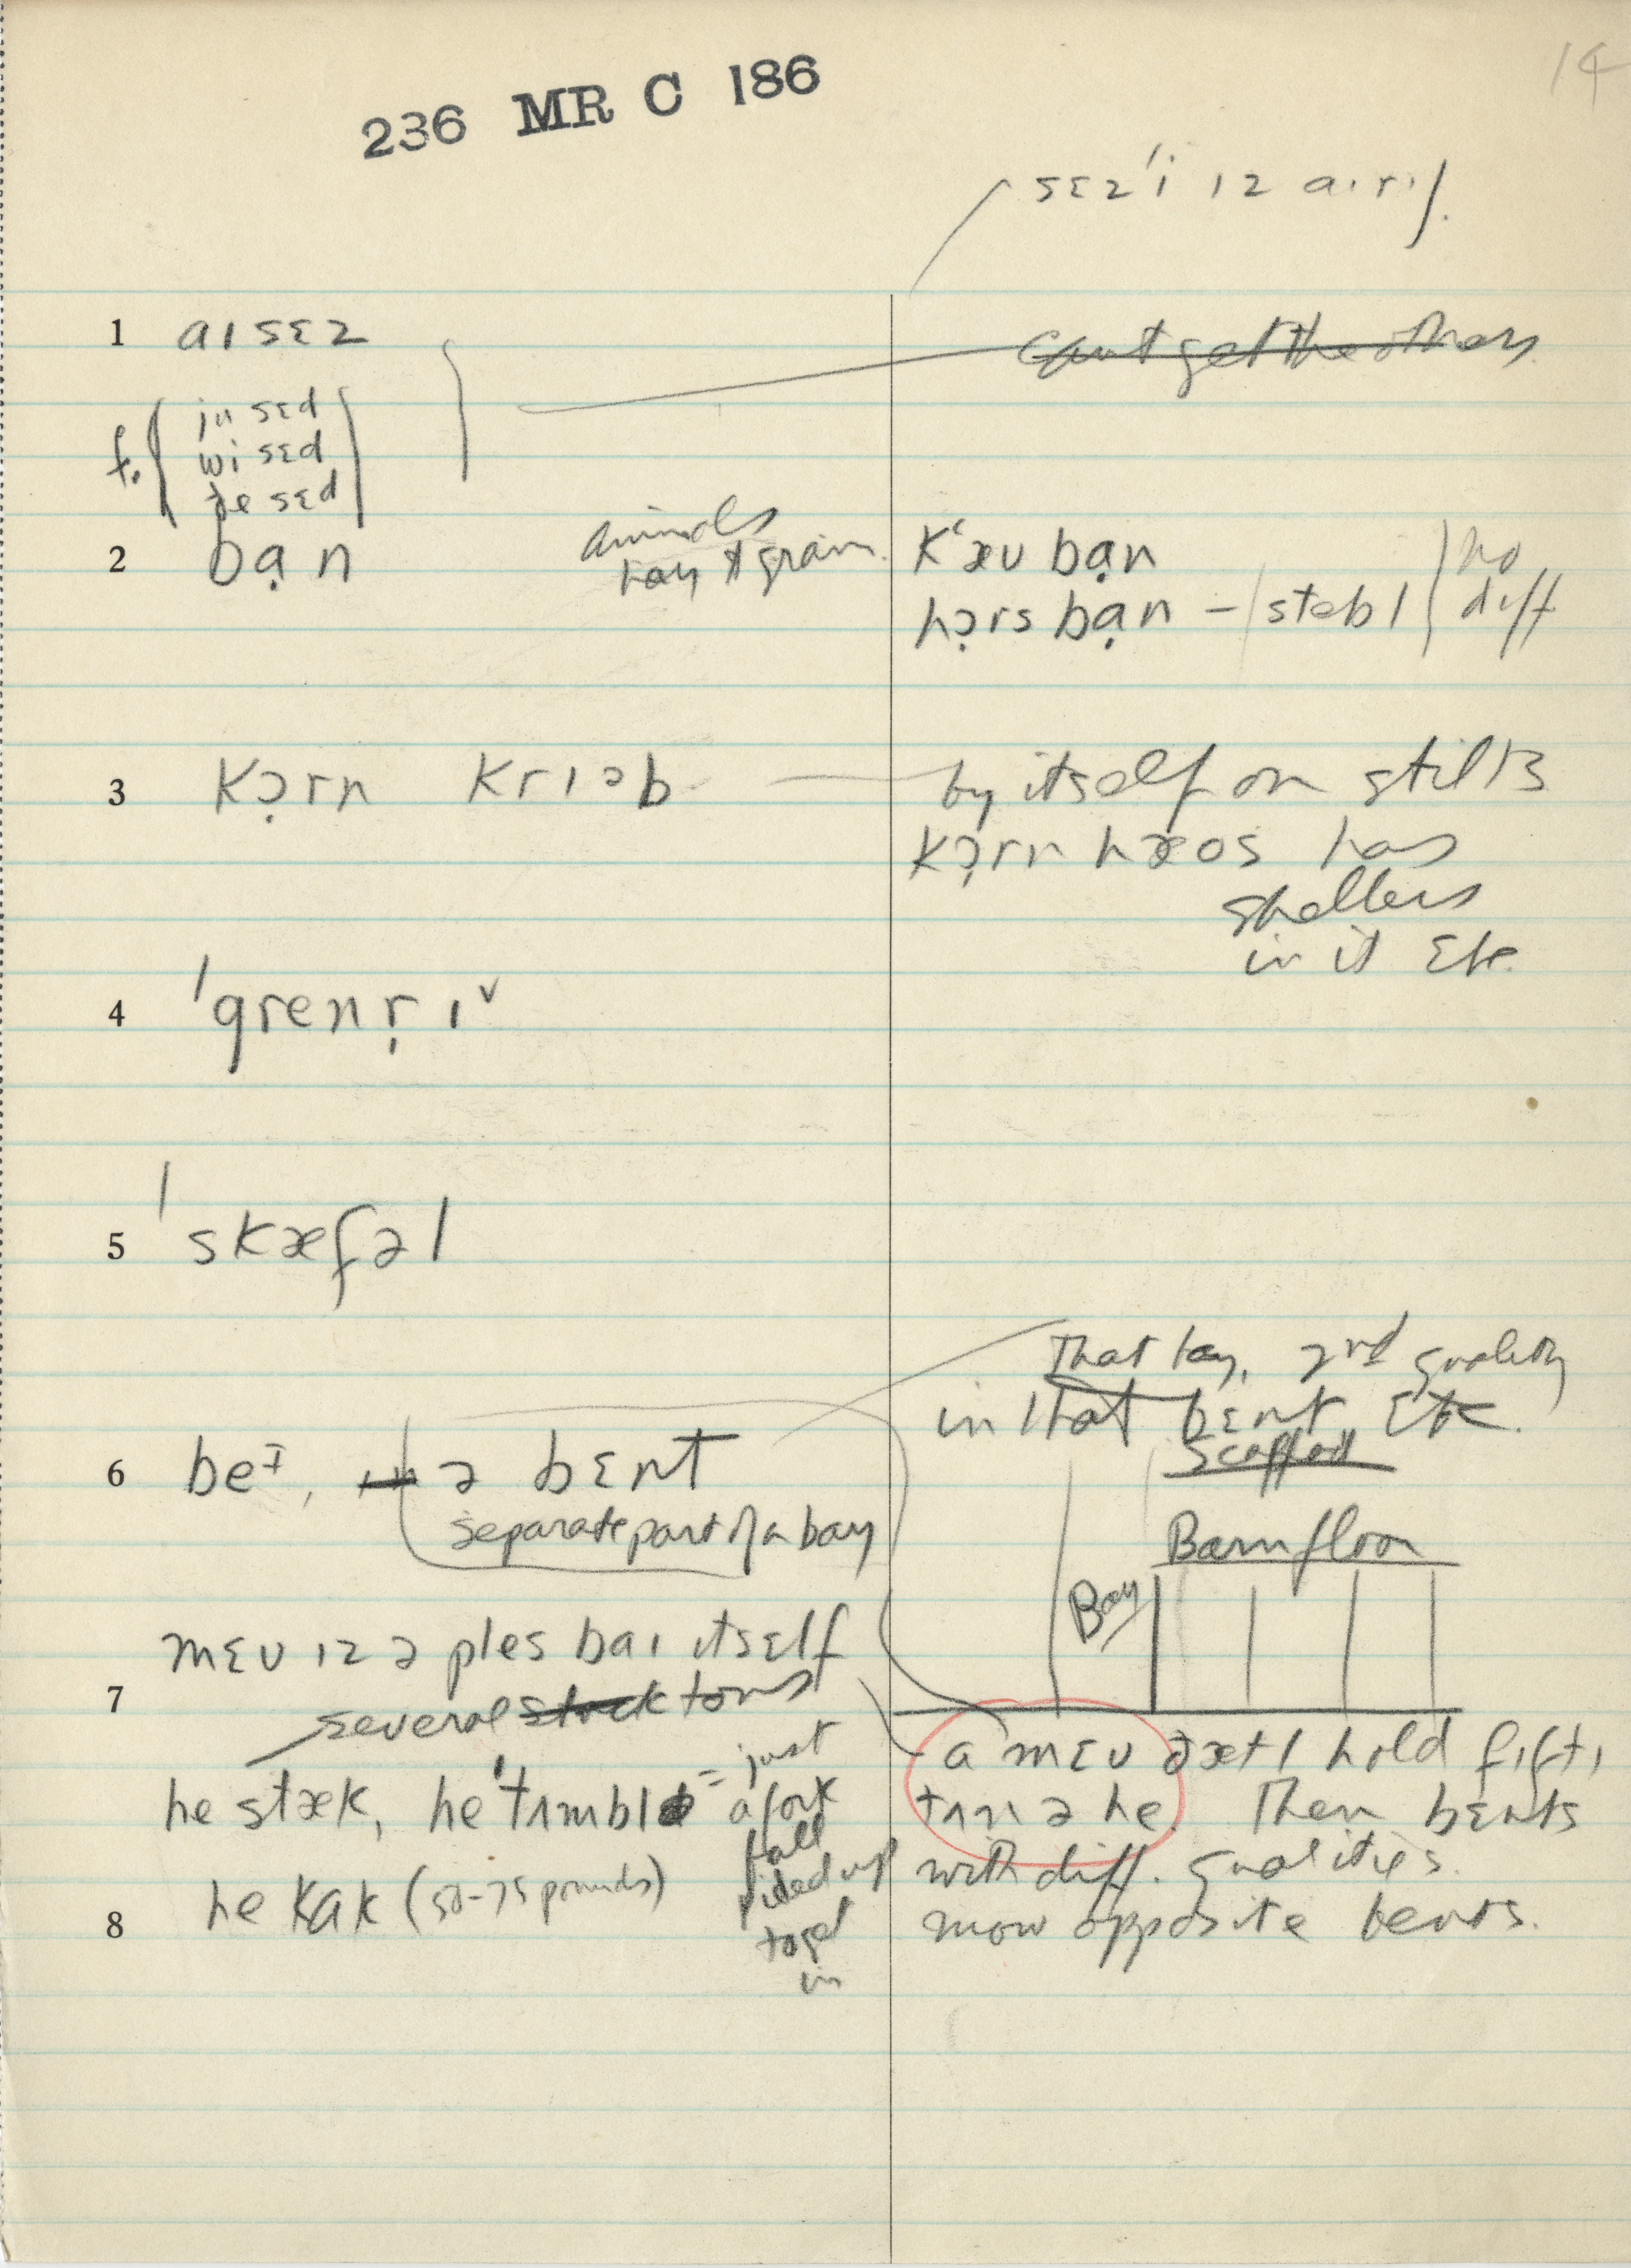 14
236 MR C 186
sɛz 'i ɪz
1 aɪ sɛz
can't get the others
f. ju sɛd
wi sɛd
ðe sɛd
2 bạn
animals
hay & grain
kʻæʊ bạn
hɔ̣rs bạn – stebl
no
diff
3 kɔ̣rn krɪəb
by itself on stilts
kɔ̣rn hæos has
shellers
in it etc.
4 'grenṛɪ˅
5 'skæfəl
That hay, 2nd quality
in that bɛnt etc.
6 beɪ, ə bɛnt
separate part of a bay
Scaffold
Barn floor
Bay
mɛʊ ɪz ə ples baɪ itsɛlf
7 several stack tons
he stæk, he 'tʌmbl = just
a fork
full
piled up
toget
in
a mɛʊ ðætl hold fɪftɪ
tʌn ə he. Then bɛnts
with diff. qualities.
8 he kak (50-75 pounds)
mow opposite bents.